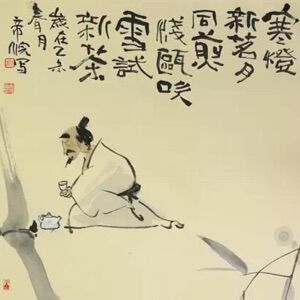 寒燈
新茗月
同煎
淺甌吹
雪試
新茶
歲在乙未
春月
寫